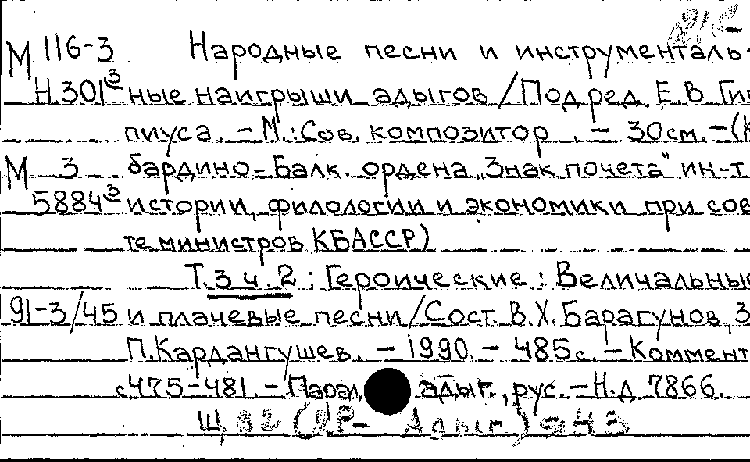 М 116-3 Народные песни и инструменталь-
Н.301³ ные наигрыши адыгов / Под ред. Е.В. Гип
пиуса. – М.: Сов. композитор . – 30см. – (К
М 3 бардино-Балк. ордена „Знак почета" ин-т
5884³ истории, филологии и экономики при сов
те министров КБАССР)
Т.3 ч.2 : Героические; Величальные
91-3/45 и плачевые песни / Сост. В.Х. Барагунов, З
П. Кардангушев. – 1990. – 485с. – Коммент
с475-481. – Парал. адыг., рус. – Н.д. 7866.
Щ